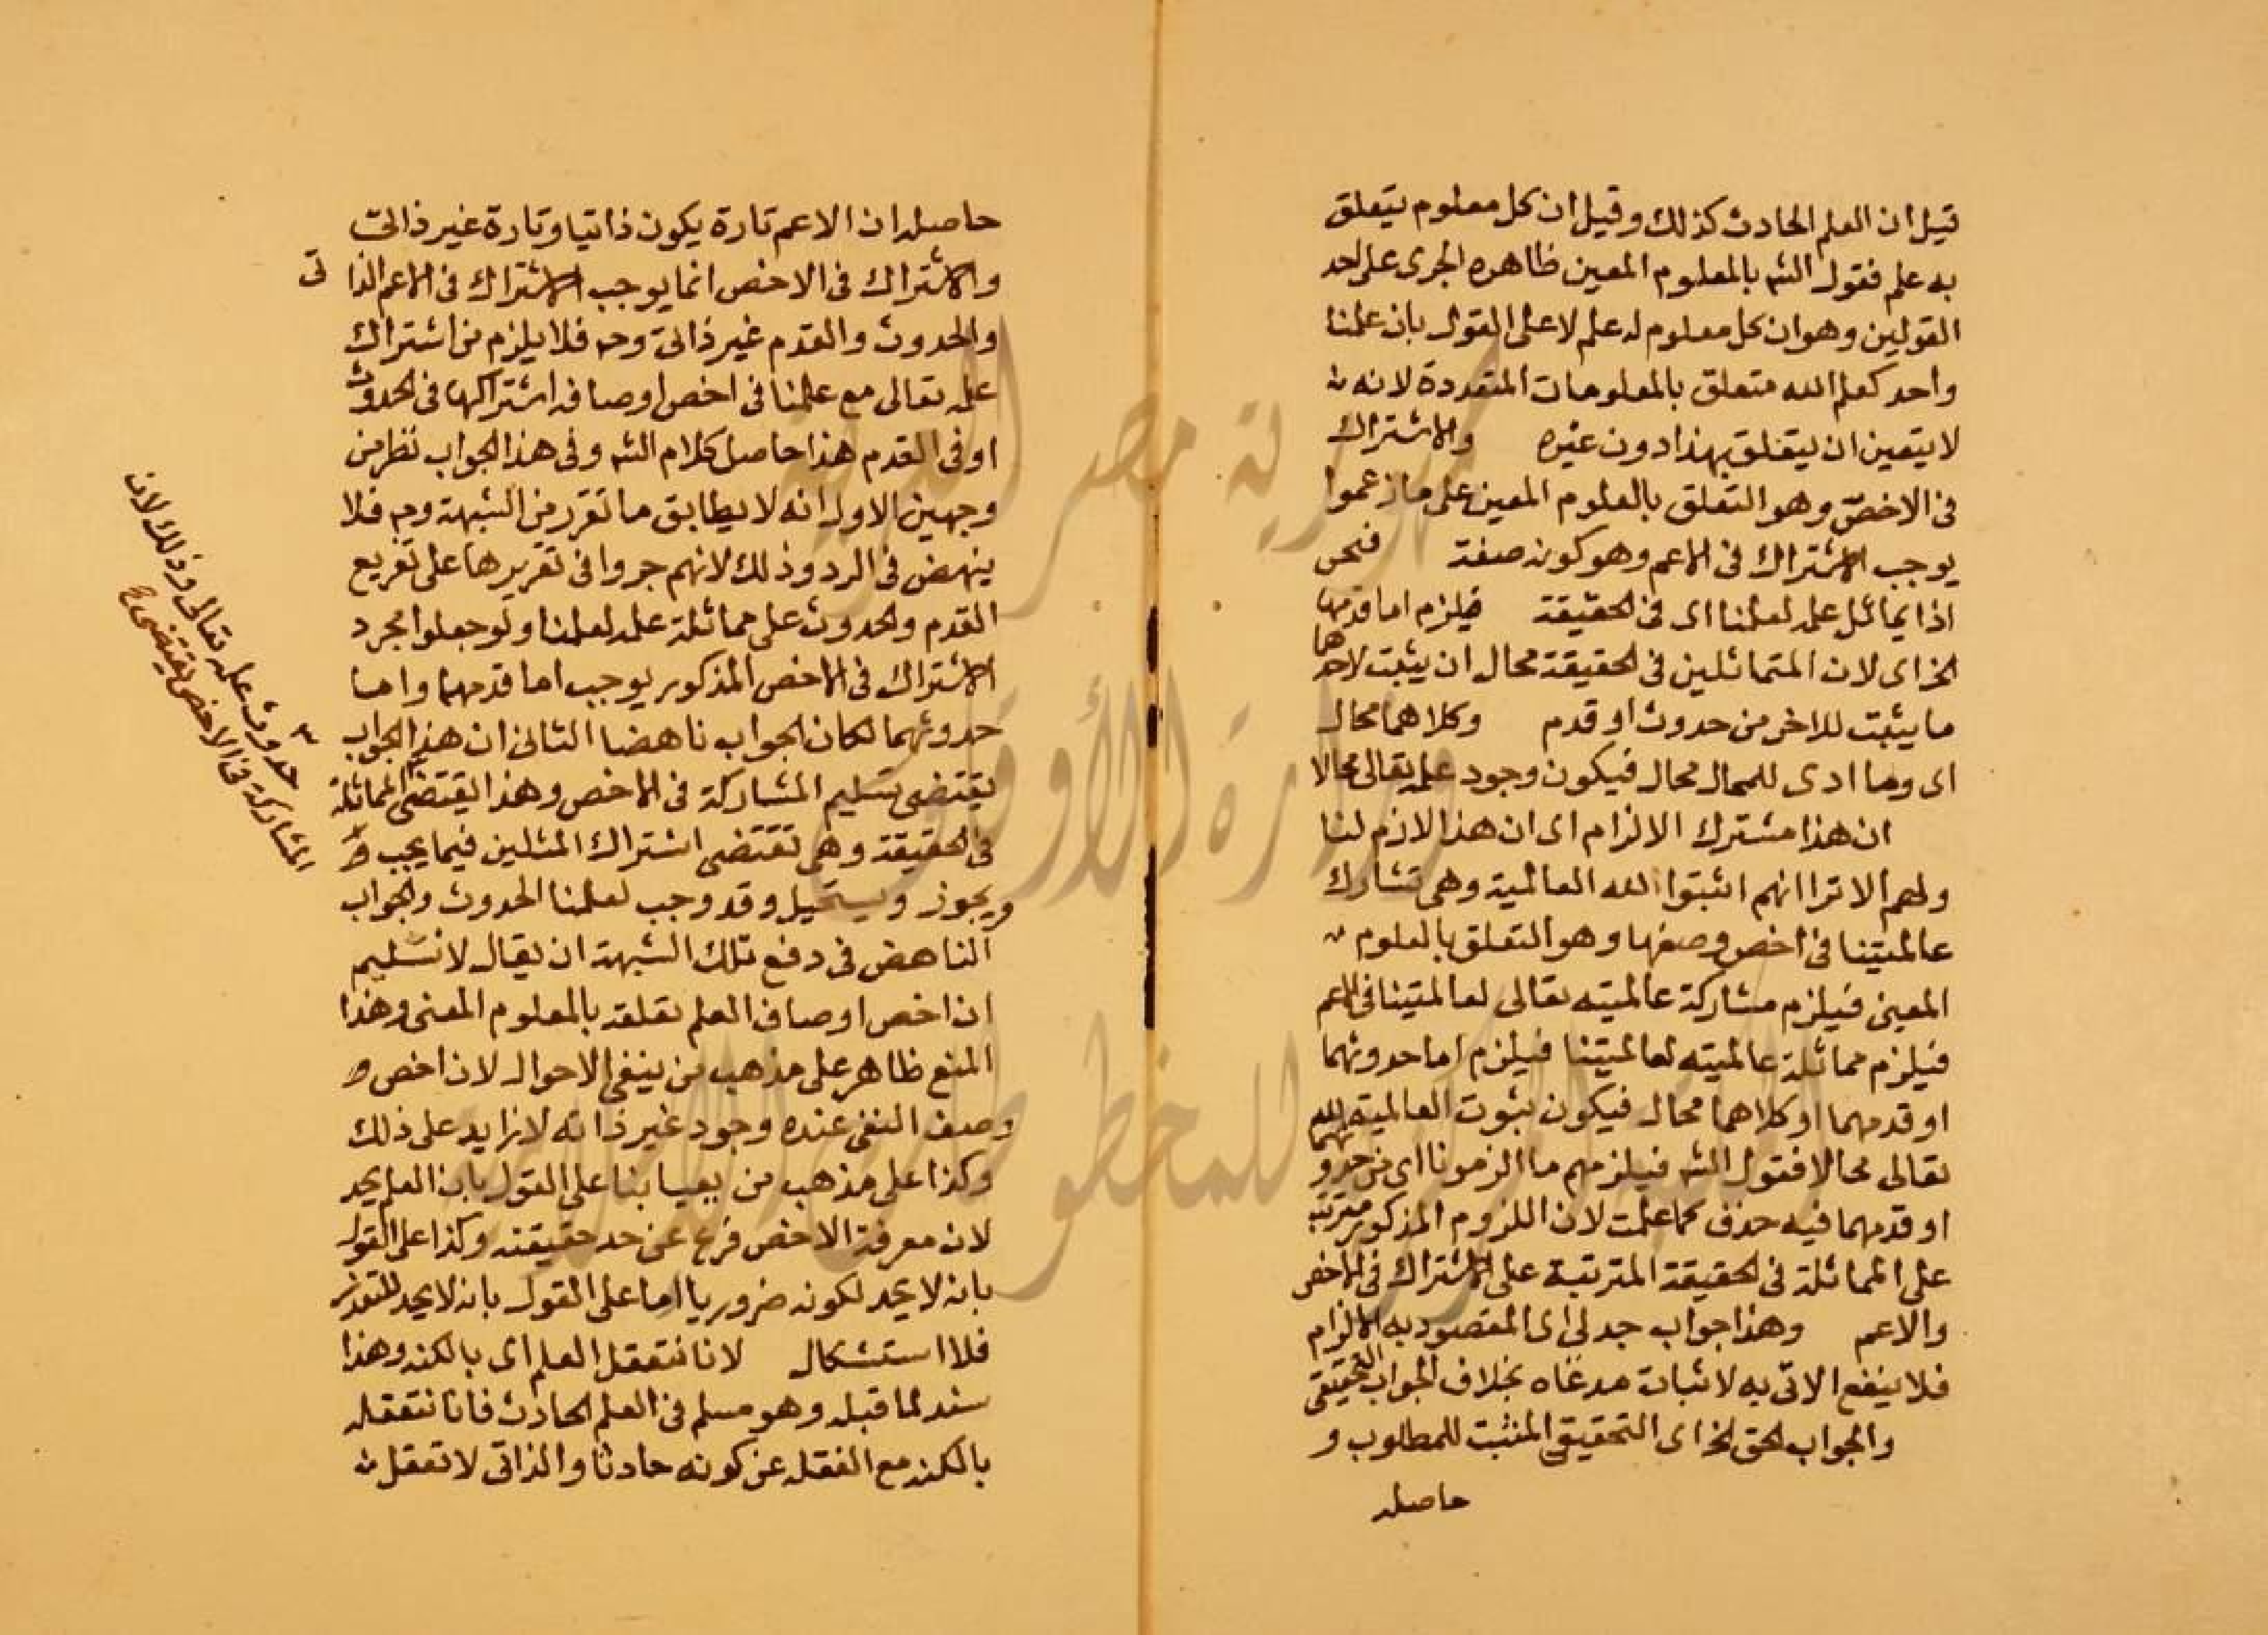 قيل ان العلم الحادث كذلك وقيل ان كل معلوم يتعلق
به علم فقول الشه بالمعلوم المعين ظاهره الجرى على احد
القولين وهو ان كل معلوم له علم لا على القول بان علمنا
واحد كعلم الله متعلق بالمعلومات المتعددة لانه
لا يتعين ان يتعلق بهذا دون غيره والاشتراك
فى الاخص وهو التعلق بالعلوم المعين على ما زعموا
يوجب الاشتراك فى الاعم وهو كونه صفة فنحن
اذا يماثل علمه لعلمنا اى فى الحقيقة فيلزم اما قدمهما
الخ اى لان المتماثلين فى الحقيقة محال ان يثبت لاحدهما
ما يثبت للاخر من حدوث او قدم وكلاهما محال
اى وما ادى للمحال محال فيكون وجود علمه تعالى محالا
ان هذا مشترك الالزام اى ان هذا لازم لنا
ولهم الا ترا انهم اثبتوا لله العالمية وهى تشارك
عالمتينا فى اخص وصفها وهو التعلق بالعلوم
المعين فيلزم مشاركة عالميته تعالى لعالمتينا فى الاعم
فيلزم مماثلة عالميته لعالميتنا فيلزم اما حدوثهما
او قدمهما او كلاهما محال فيكون ثبوت العالمية لله
تعالى محالا فقول الشه فيلزمهم ما الزمونا اى من حدوثهما
او قدمهما فيه حذف كما علمت لان اللزوم المذكور مترتب
على المماثلة فى الحقيقة المترتبة على الاشتراك فى الاخص
والاعم وهذا جواب جدلى اى المقصود به الالزام
فلا ينفع الاتى به لاثبات مدعاه بخلاف الجواب التحقيقى
والجواب الحق الخ اى التحقيقى المثبت للمطلوب و
حاصله
حاصله ان الاعم تارة يكون ذاتيا وتارة غير ذاتى
والاشتراك فى الاخص انما يوجب الاشتراك فى الاعم الذا تى
والحدوث والقدم غير ذاتى وح فلا يلزم من اشتراك
علمه تعالى مع علمنا فى اخص اوصافه اشتراكها فى الحدوث
او فى القدم هذا حاصل كلام الشه وفى هذا الجواب نظر من
وجهين الاول انه لا يطابق ما تقرر من الشبهة وح فلا
ينهض فى الرد وذلك لانهم جروا فى تقريرها على تفريع
القدم والحدوث على مماثلة علمه لعلمنا ولو جعلوا مجرد
الاشتراك فى الاخص المذكور يوجب اما قدمهما واما
حدوثهما لكان الجواب ناهضا الثانى ان هذا الجواب
يقتضى تسليم المشاركة فى الاخص وهذا يقتضى المماثلة
فى الحقيقة وهى تقتضى اشتراك المثلين فيما يجب
ويجوز ويستحيل وقد وجب لعلمنا الحدوث والجواب
الناهض فى دفع تلك الشبهة ان يقال لا نسليم
ان اخص اوصاف العلم تعلقه بالمعلوم المعنى وهذا
المنع ظاهر على مذهب من ينفى الاحوال لان اخص
وصف النفى عنده وجود غير ذاته لا زايد على ذلك
وكذا على مذهب من بنا على القول بان العلم يحد
لان معرفة الاخص فرع عن حد حقيقته وكذا على القول
بانه لا يحد لكونه ضروريا اما على القول بانه لا يحد للتعذر
فلا استشكال لانا نتعقل العلم اى بالكنه وهذا
سند لما قبله وهو مسلم فى العلم الحادث فانا نتعقله
بالكنه مع الغفلة عن كونه حادثا والذاتى لا تعقل
حدوث علمه تعالى وذلك لان
المشاركة فى الاخص تقتضى